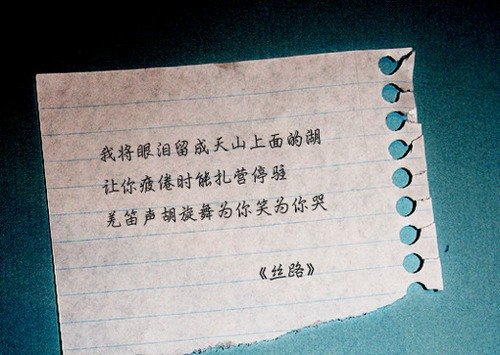 我将眼泪留成天山上面的湖
让你疲倦时能扎营停驻
羌笛声胡旋舞为你笑为你哭
《丝路》